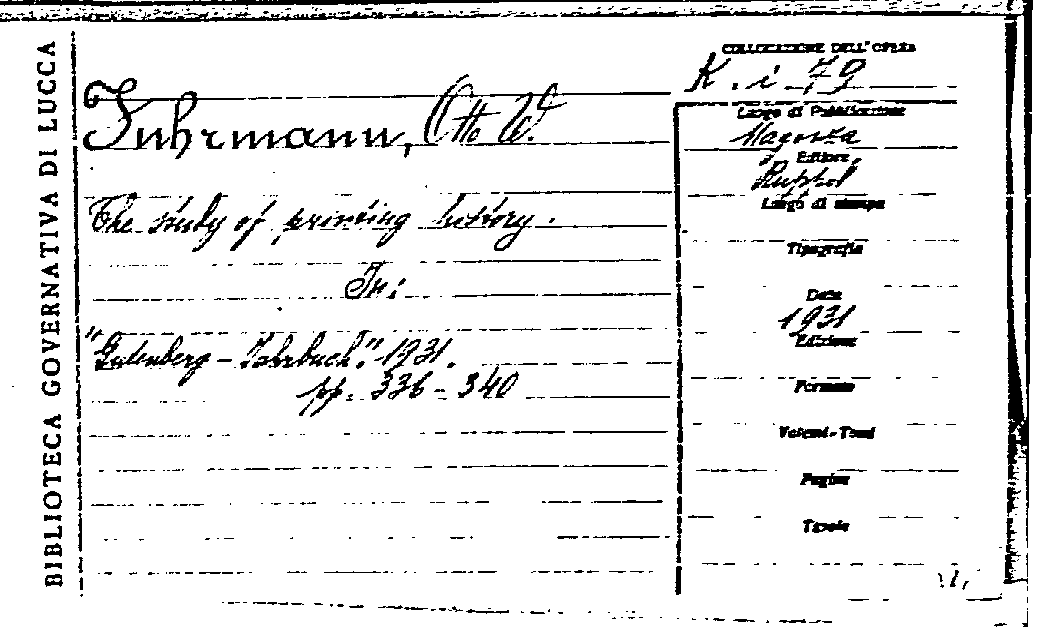 BIBLIOTECA GOVERNATIVA DI LUCCA
Fuhrmann, Otto W.
The study of printing history.
In:
"Gutenberg-Jahrbuch". 1931.
pp. 336-340
COLLOCAZIONE DELL'OPERA
K. i 79
Luogo di Pubblicazione
Magonza
Editore
Ruppel
Luogo di stampa
Tipografia
Data
1931
Edizione
Formato
Volumi-Tomi
Pagine
Tavole